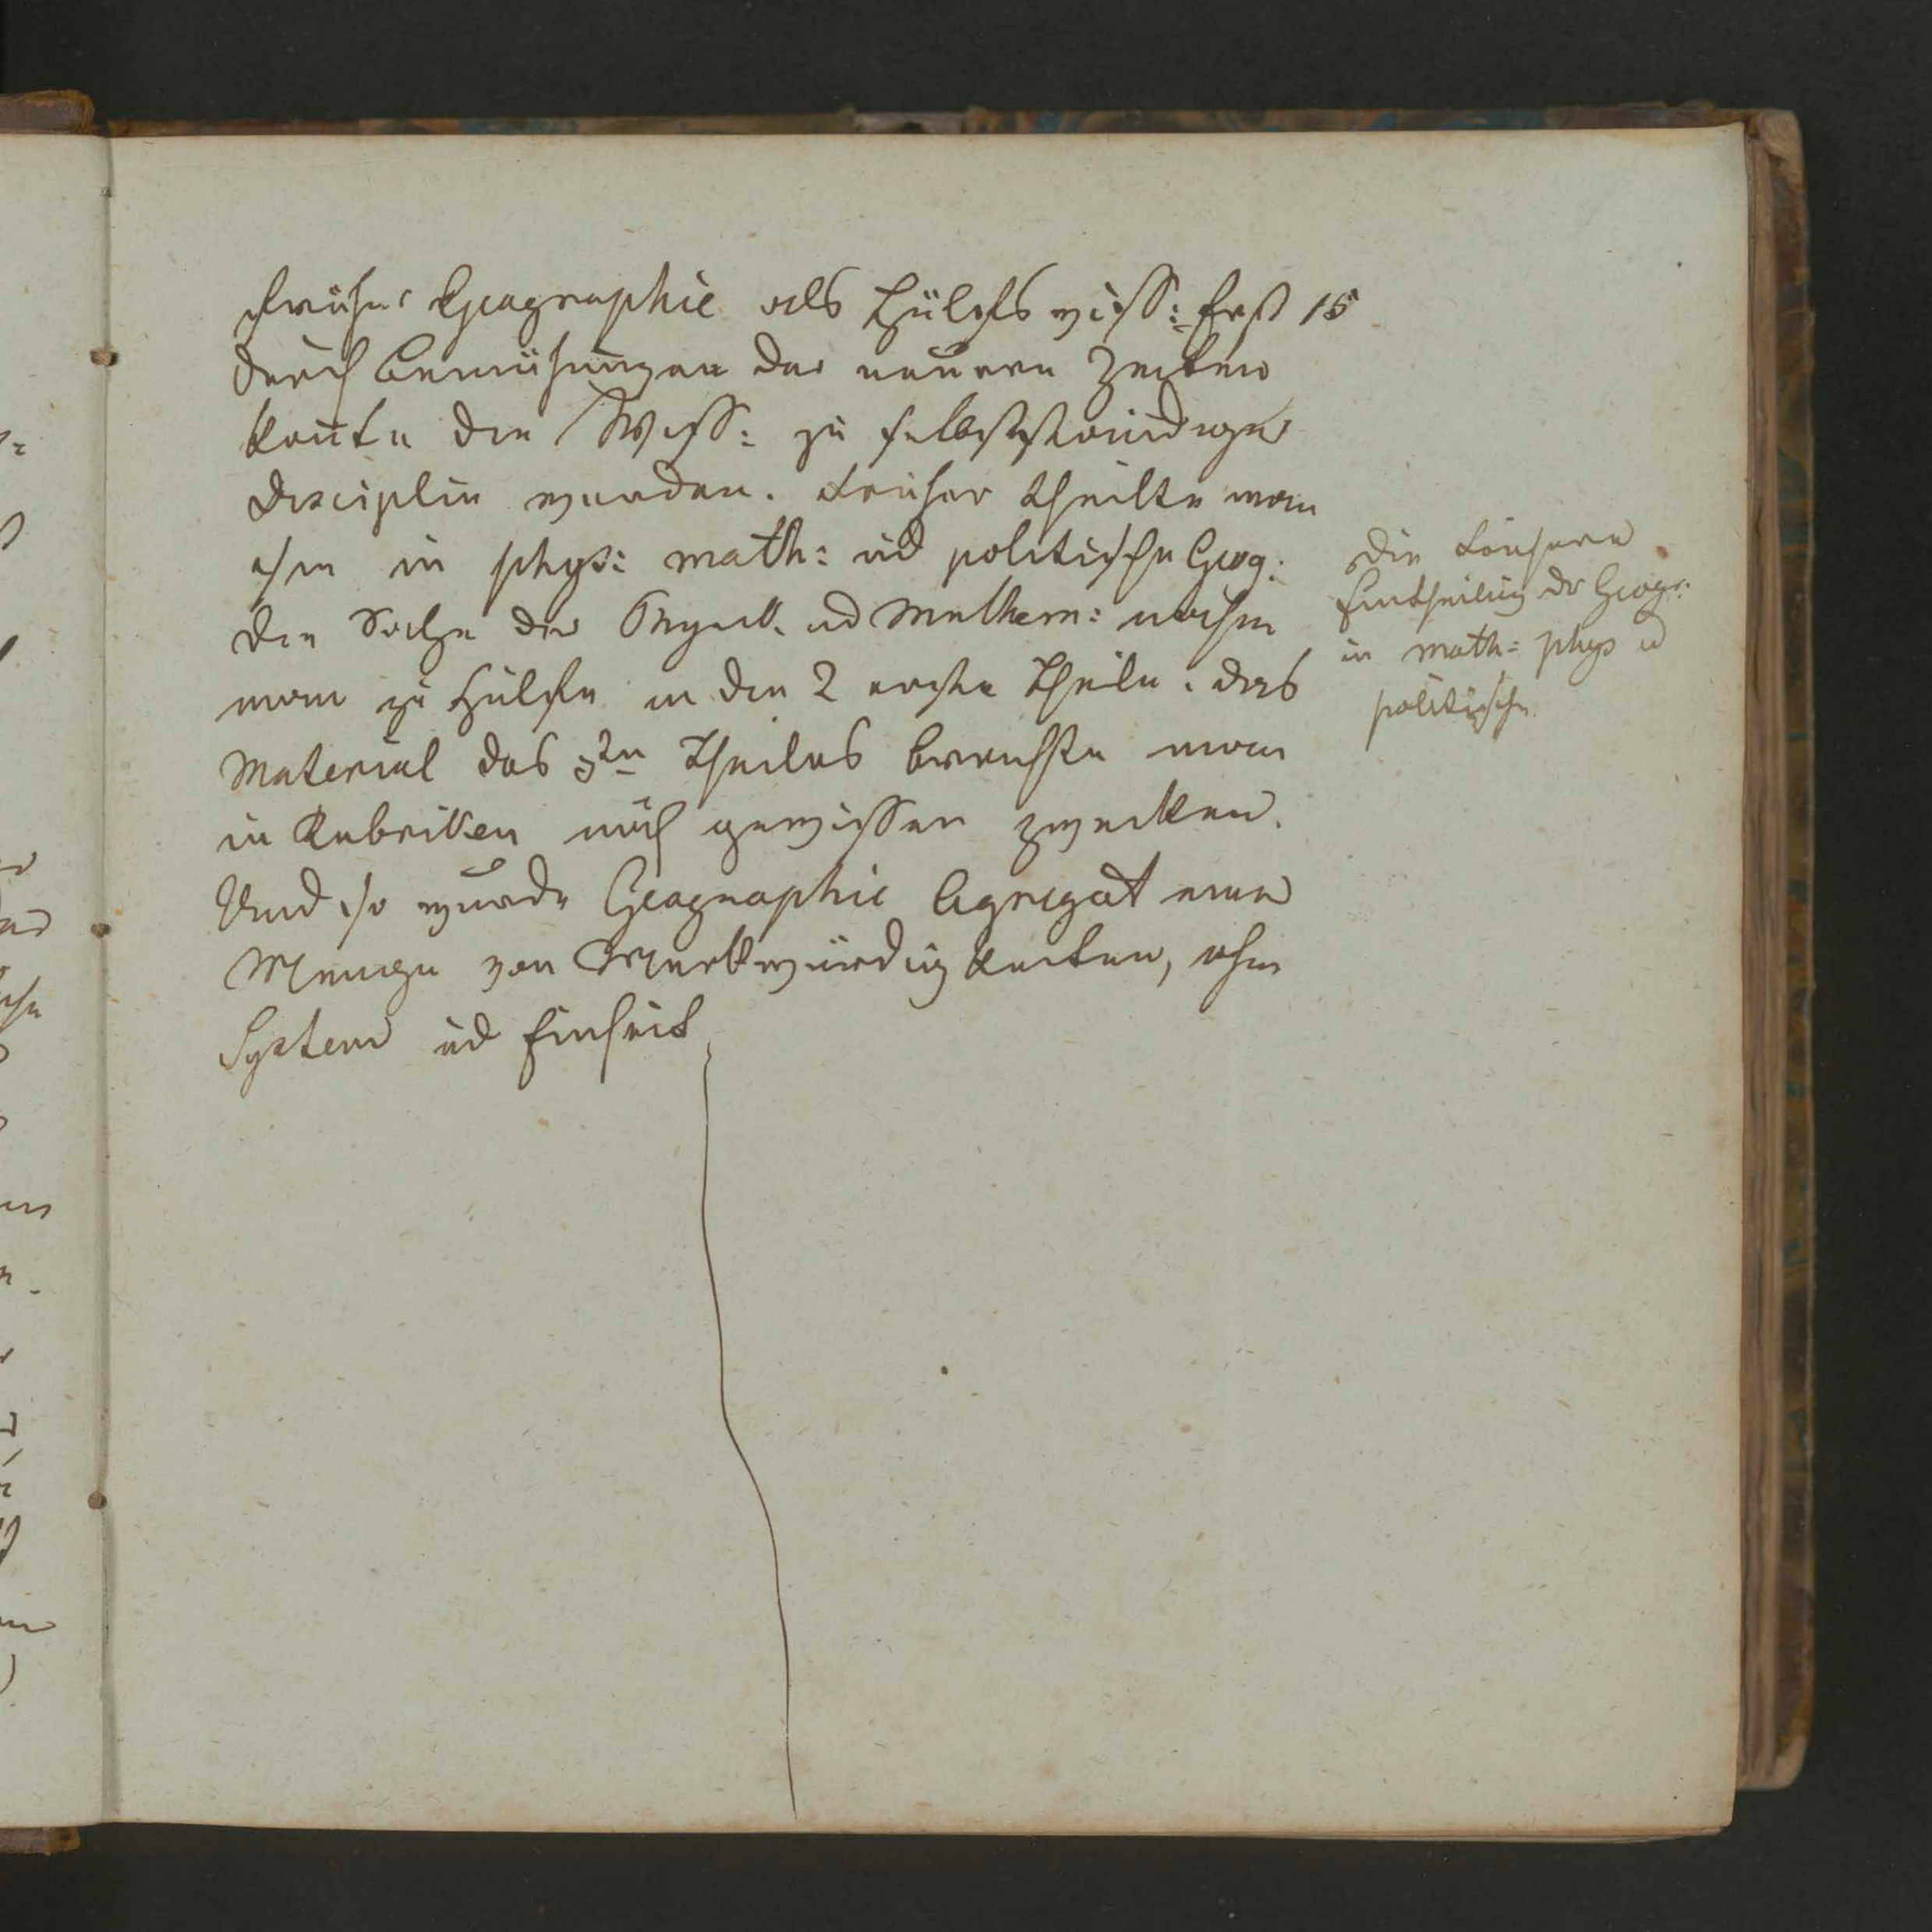 Früher Geographie als Hülfswiss: Erst 15
durch Bemühungen der neuern Zeiten
konnte die Wiss: zu selbstständiger
Disciplin werden. Früher theilte man
sie in phys: math: ud politische Geog:
Die Sätze der Physik ud Mathem: nahm
man zu Hülfe in den 2 erste Theile. das
Material des 3ten Theiles brachte man
in Rubriken nach gewissen Zwecken.
Und so wurde Geographie Agregat einer
Menge von Merkwürdigkeiten, ohne
System ud Einheit
Die frühere
Eintheilung dr Geogr:
in math: phys ud
politische.